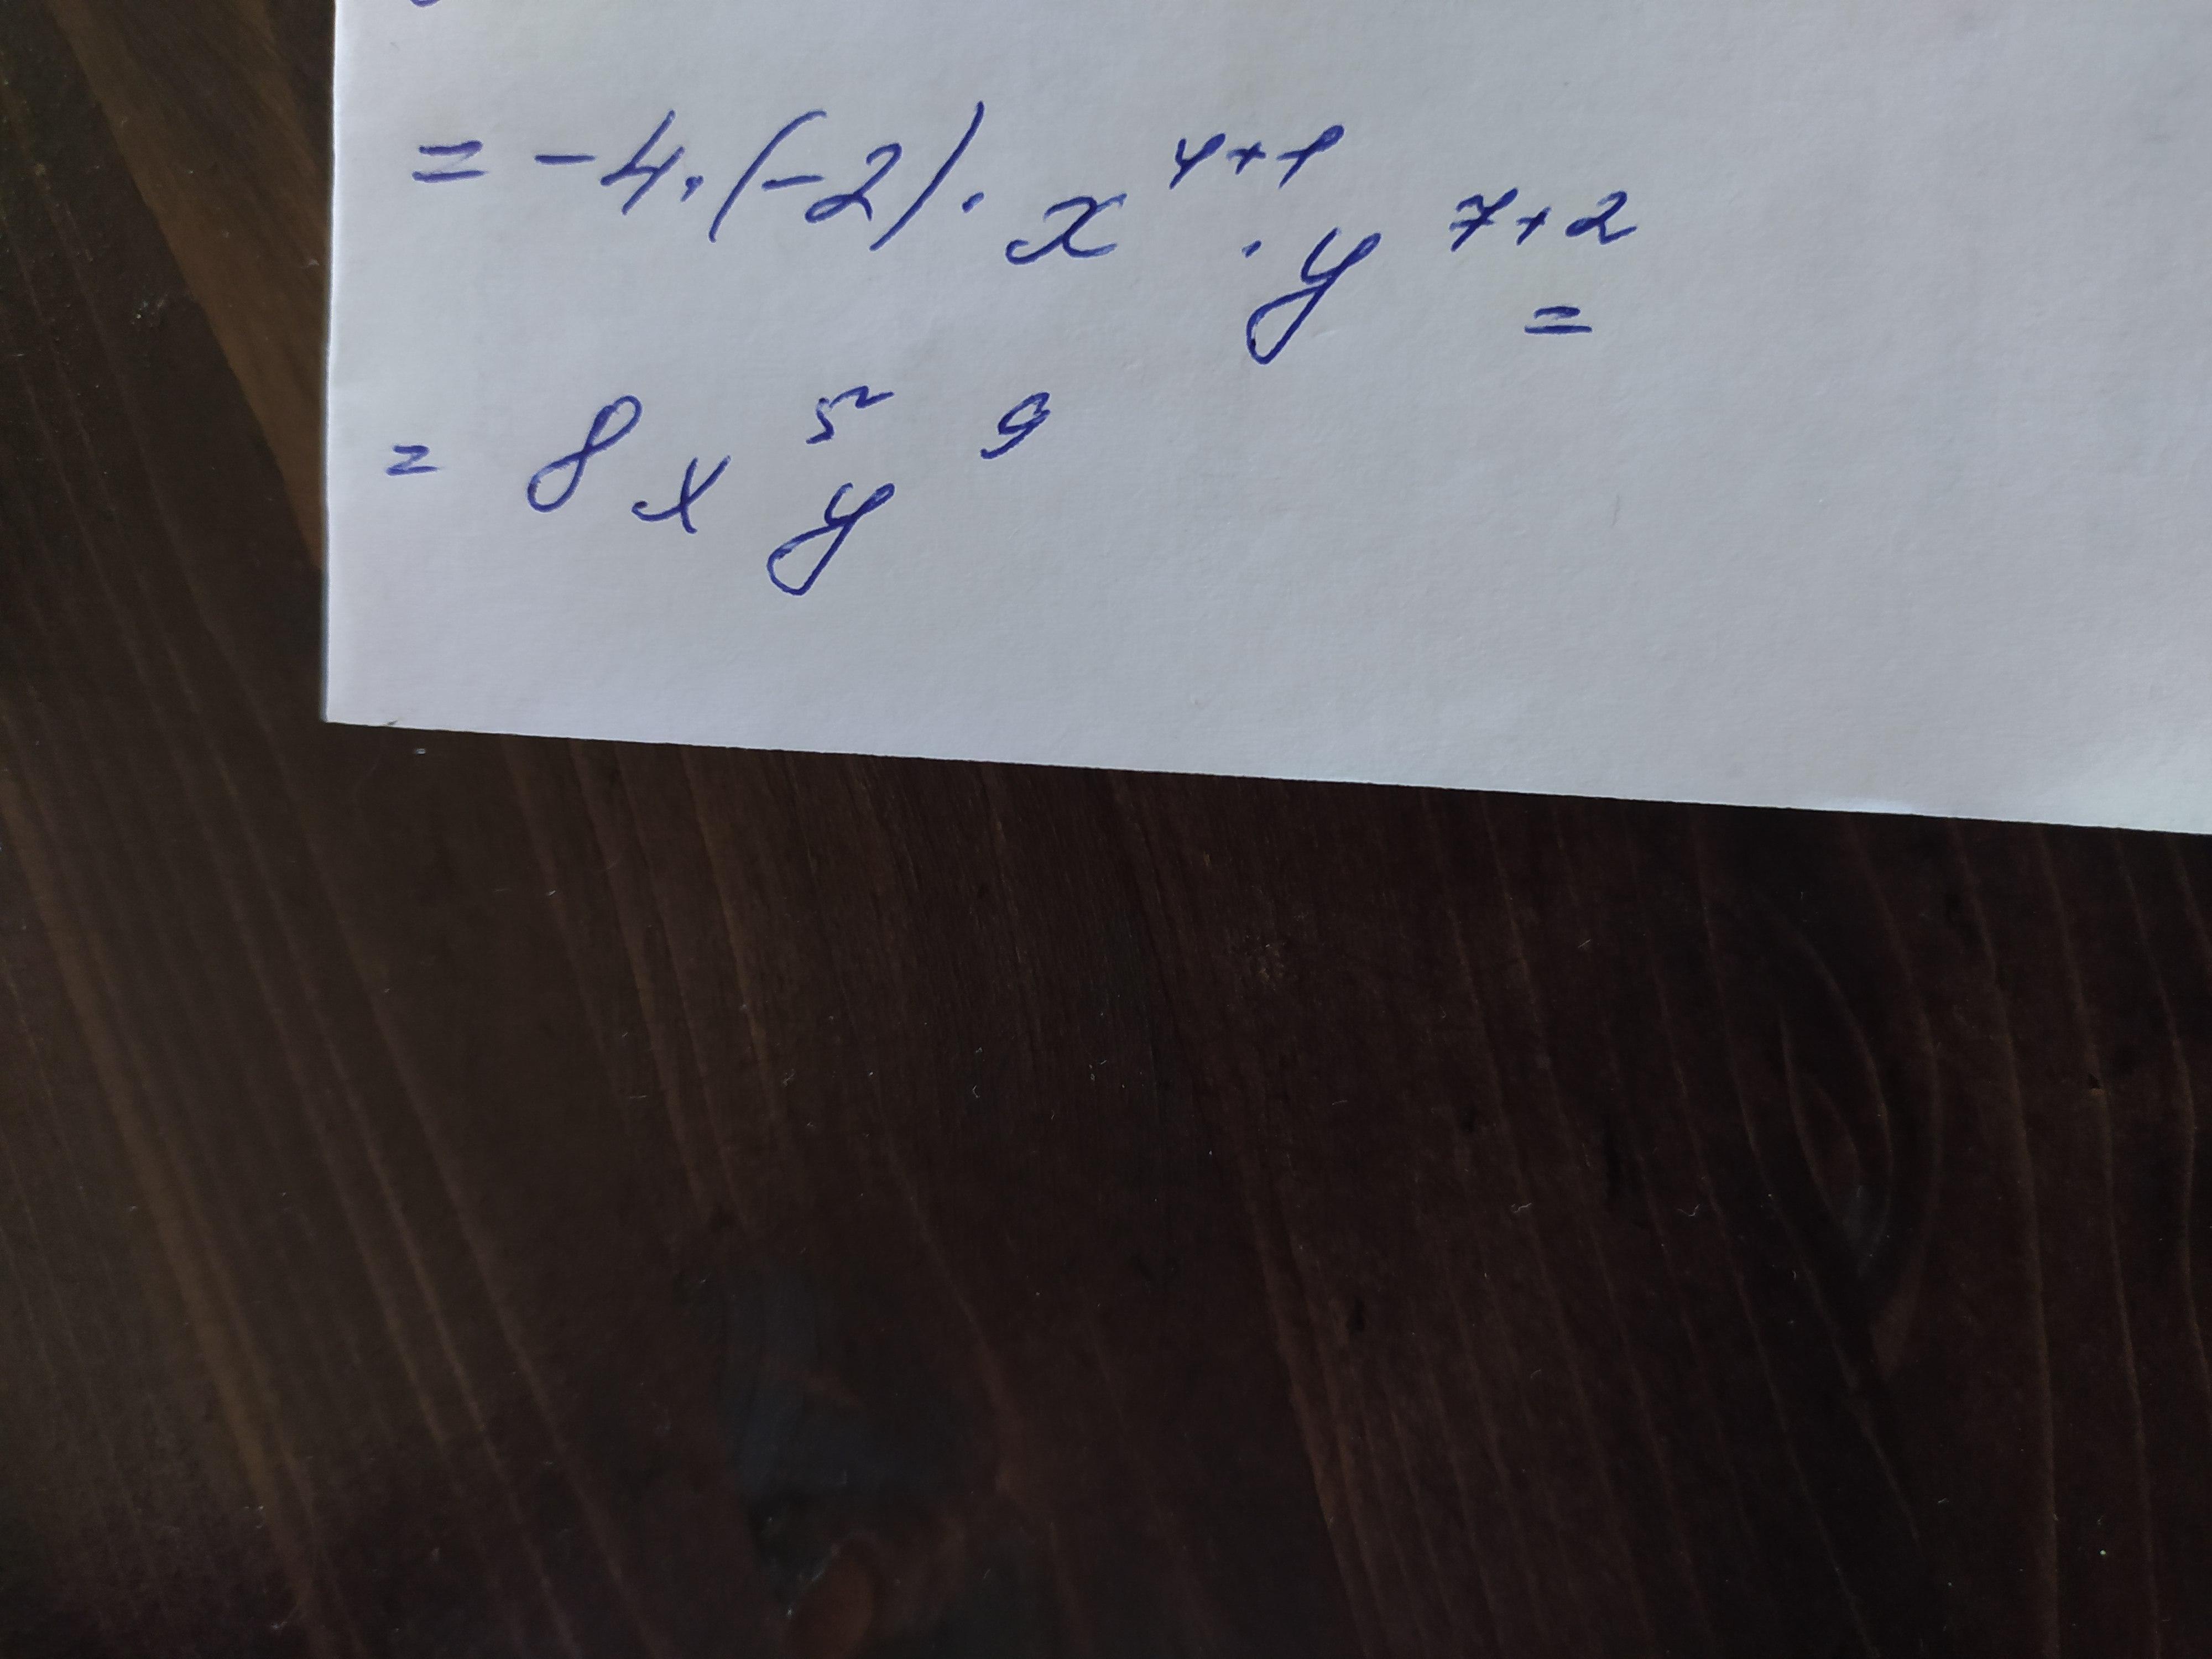 = -4·(-2)·x⁴⁺¹·y⁷⁺² =
= 8x⁵y⁹